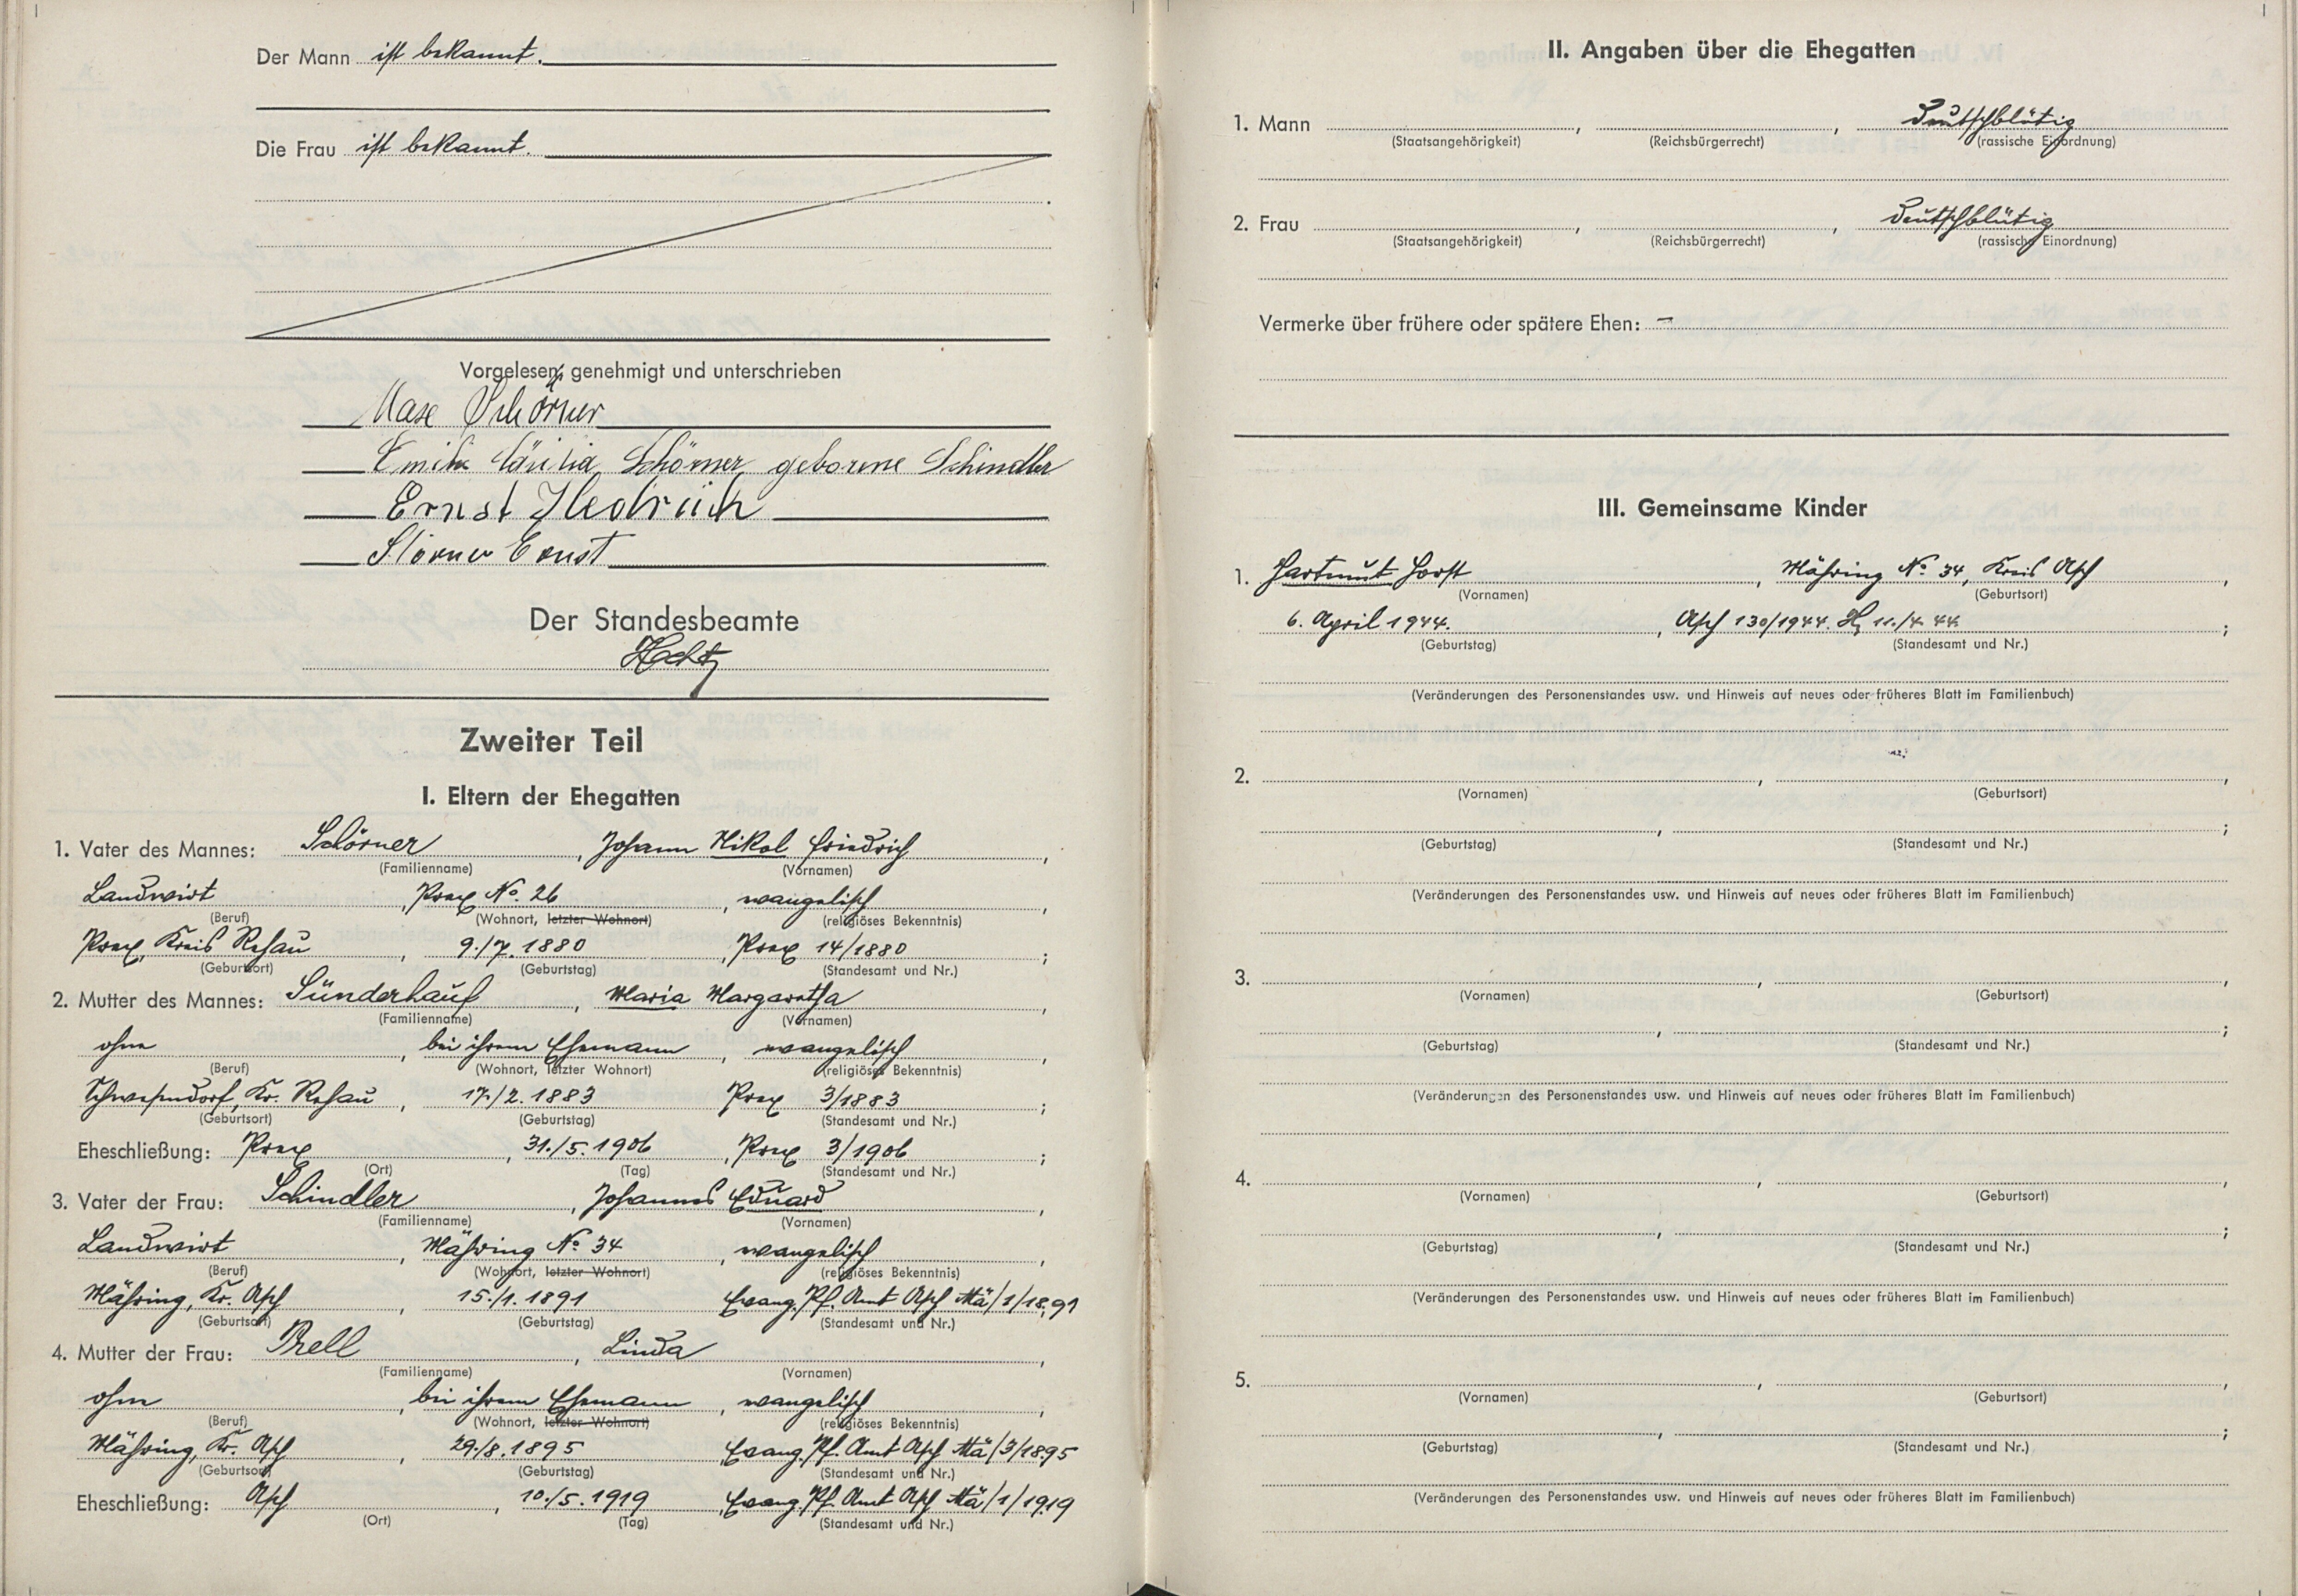 Der Mann ist bekannt.
Die Frau ist bekannt.
Vorgelesen, genehmigt und unterschrieben
Max Schörner
Emilie Cäcilia Schörner, geborene Schindler
Ernst
Ernst
Der Standesbeamte
Zweiter Teil
I. Eltern der Ehegatten
1. Vater des Mannes: Schörner, Johann Nikol Friedrich,
(Familienname) (Vornamen)
Landwirt, Prex No. 26, evangelisch,
(Beruf) (Wohnort, letzter Wohnort) (religiöses Bekenntnis)
Prex, Kreis Rehau, 9./7. 1880, Prex 14/1880;
(Geburtsort) (Geburtstag) (Standesamt und Nr.)
2. Mutter des Mannes: Sünderhauf, Maria Margaretha,
(Familienname) (Vornamen)
ohne, bei ihrem Ehemann, evangelisch,
(Beruf) (Wohnort, letzter Wohnort) (religiöses Bekenntnis)
Schwesendorf, Kr. Rehau, 17./2. 1883 Prex 3/1883;
(Geburtsort) (Geburtstag) (Standesamt und Nr.)
Eheschließung: Prex, 31./5. 1906, Prex 3/1906;
(Ort) (Tag) (Standesamt und Nr.)
3. Vater der Frau: Schindler, Johannes Eduard,
(Familienname) (Vornamen)
Landwirt, Mähring No. 34, evangelisch,
(Beruf) (Wohnort, letzter Wohnort) (religiöses Bekenntnis)
Mähring, Kr. Asch, 15./1. 1891 Evang. Pf. Amt Asch Mä/1/1891
(Geburtsort) (Geburtstag) (Standesamt und Nr.)
4. Mutter der Frau: Prell, Linda,
(Familienname) (Vornamen)
ohne, bei ihrem Ehemann, evangelisch,
(Beruf) (Wohnort, letzter Wohnort) (religiöses Bekenntnis)
Mähring, Kr. Asch, 29./8. 1895, Evang. Pf. Amt Asch Mä/3/1895
(Geburtsort) (Geburtstag) (Standesamt und Nr.)
Eheschließung: Asch, 10./5. 1919, Evang. Pf. Amt Asch Mä/1/1919
(Ort) (Tag) (Standesamt und Nr.)
II. Angaben über die Ehegatten
1. Mann , , Deutschblütig
(Staatsangehörigkeit) (Reichsbürgerrecht) (rassische Einordnung)
2. Frau , , Deutschblütig
(Staatsangehörigkeit) (Reichsbürgerrecht) (rassische Einordnung)
Vermerke über frühere oder spätere Ehen: –
III. Gemeinsame Kinder
1. Hartmut Horst, Mähring No. 34, Kreis Asch,
(Vornamen) (Geburtsort)
6. April 1944., Asch 130/1944. 11./4. 44;
(Geburtstag) (Standesamt und Nr.)
(Veränderungen des Personenstandes usw. und Hinweis auf neues oder früheres Blatt im Familienbuch)
2. , ,
(Vornamen) (Geburtsort)
, ;
(Geburtstag) (Standesamt und Nr.)
(Veränderungen des Personenstandes usw. und Hinweis auf neues oder früheres Blatt im Familienbuch)
3. , ,
(Vornamen) (Geburtsort)
, ;
(Geburtstag) (Standesamt und Nr.)
(Veränderungen des Personenstandes usw. und Hinweis auf neues oder früheres Blatt im Familienbuch)
4. , ,
(Vornamen) (Geburtsort)
, ;
(Geburtstag) (Standesamt und Nr.)
(Veränderungen des Personenstandes usw. und Hinweis auf neues oder früheres Blatt im Familienbuch)
5. , ,
(Vornamen) (Geburtsort)
, ;
(Geburtstag) (Standesamt und Nr.)
(Veränderungen des Personenstandes usw. und Hinweis auf neues oder früheres Blatt im Familienbuch)